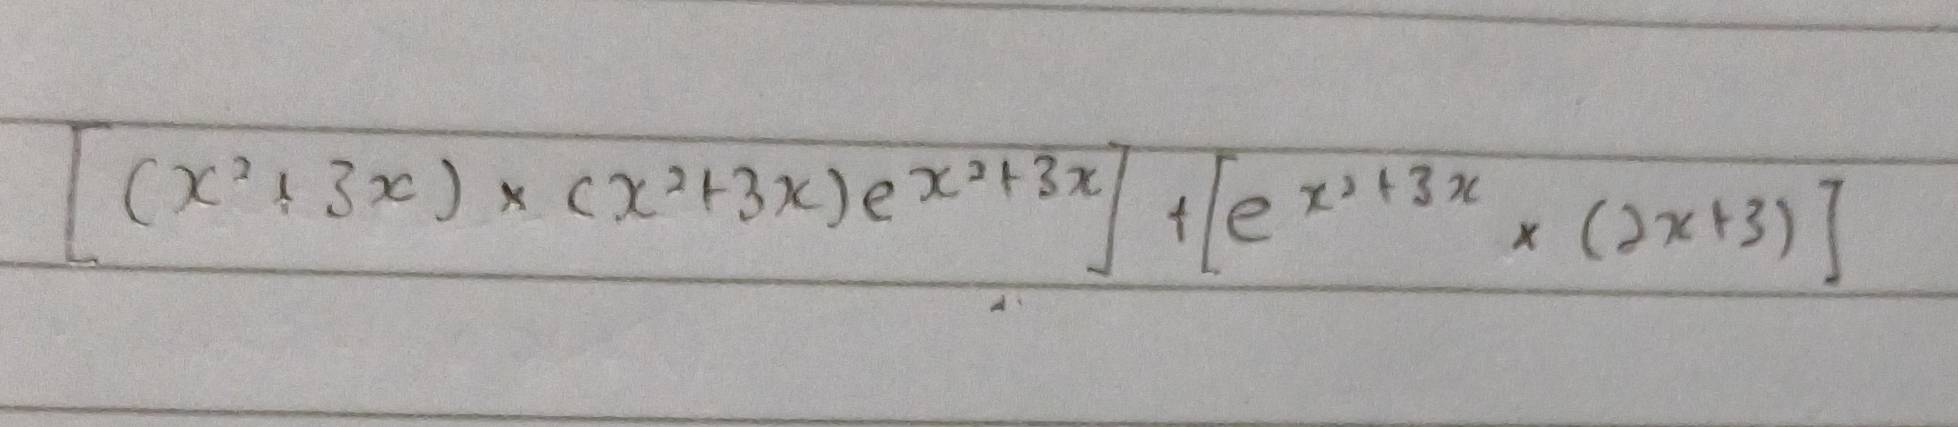 [(x²+3x) × (x²+3x)e^{x²+3x}] + [e^{x²+3x} × (2x+3)]